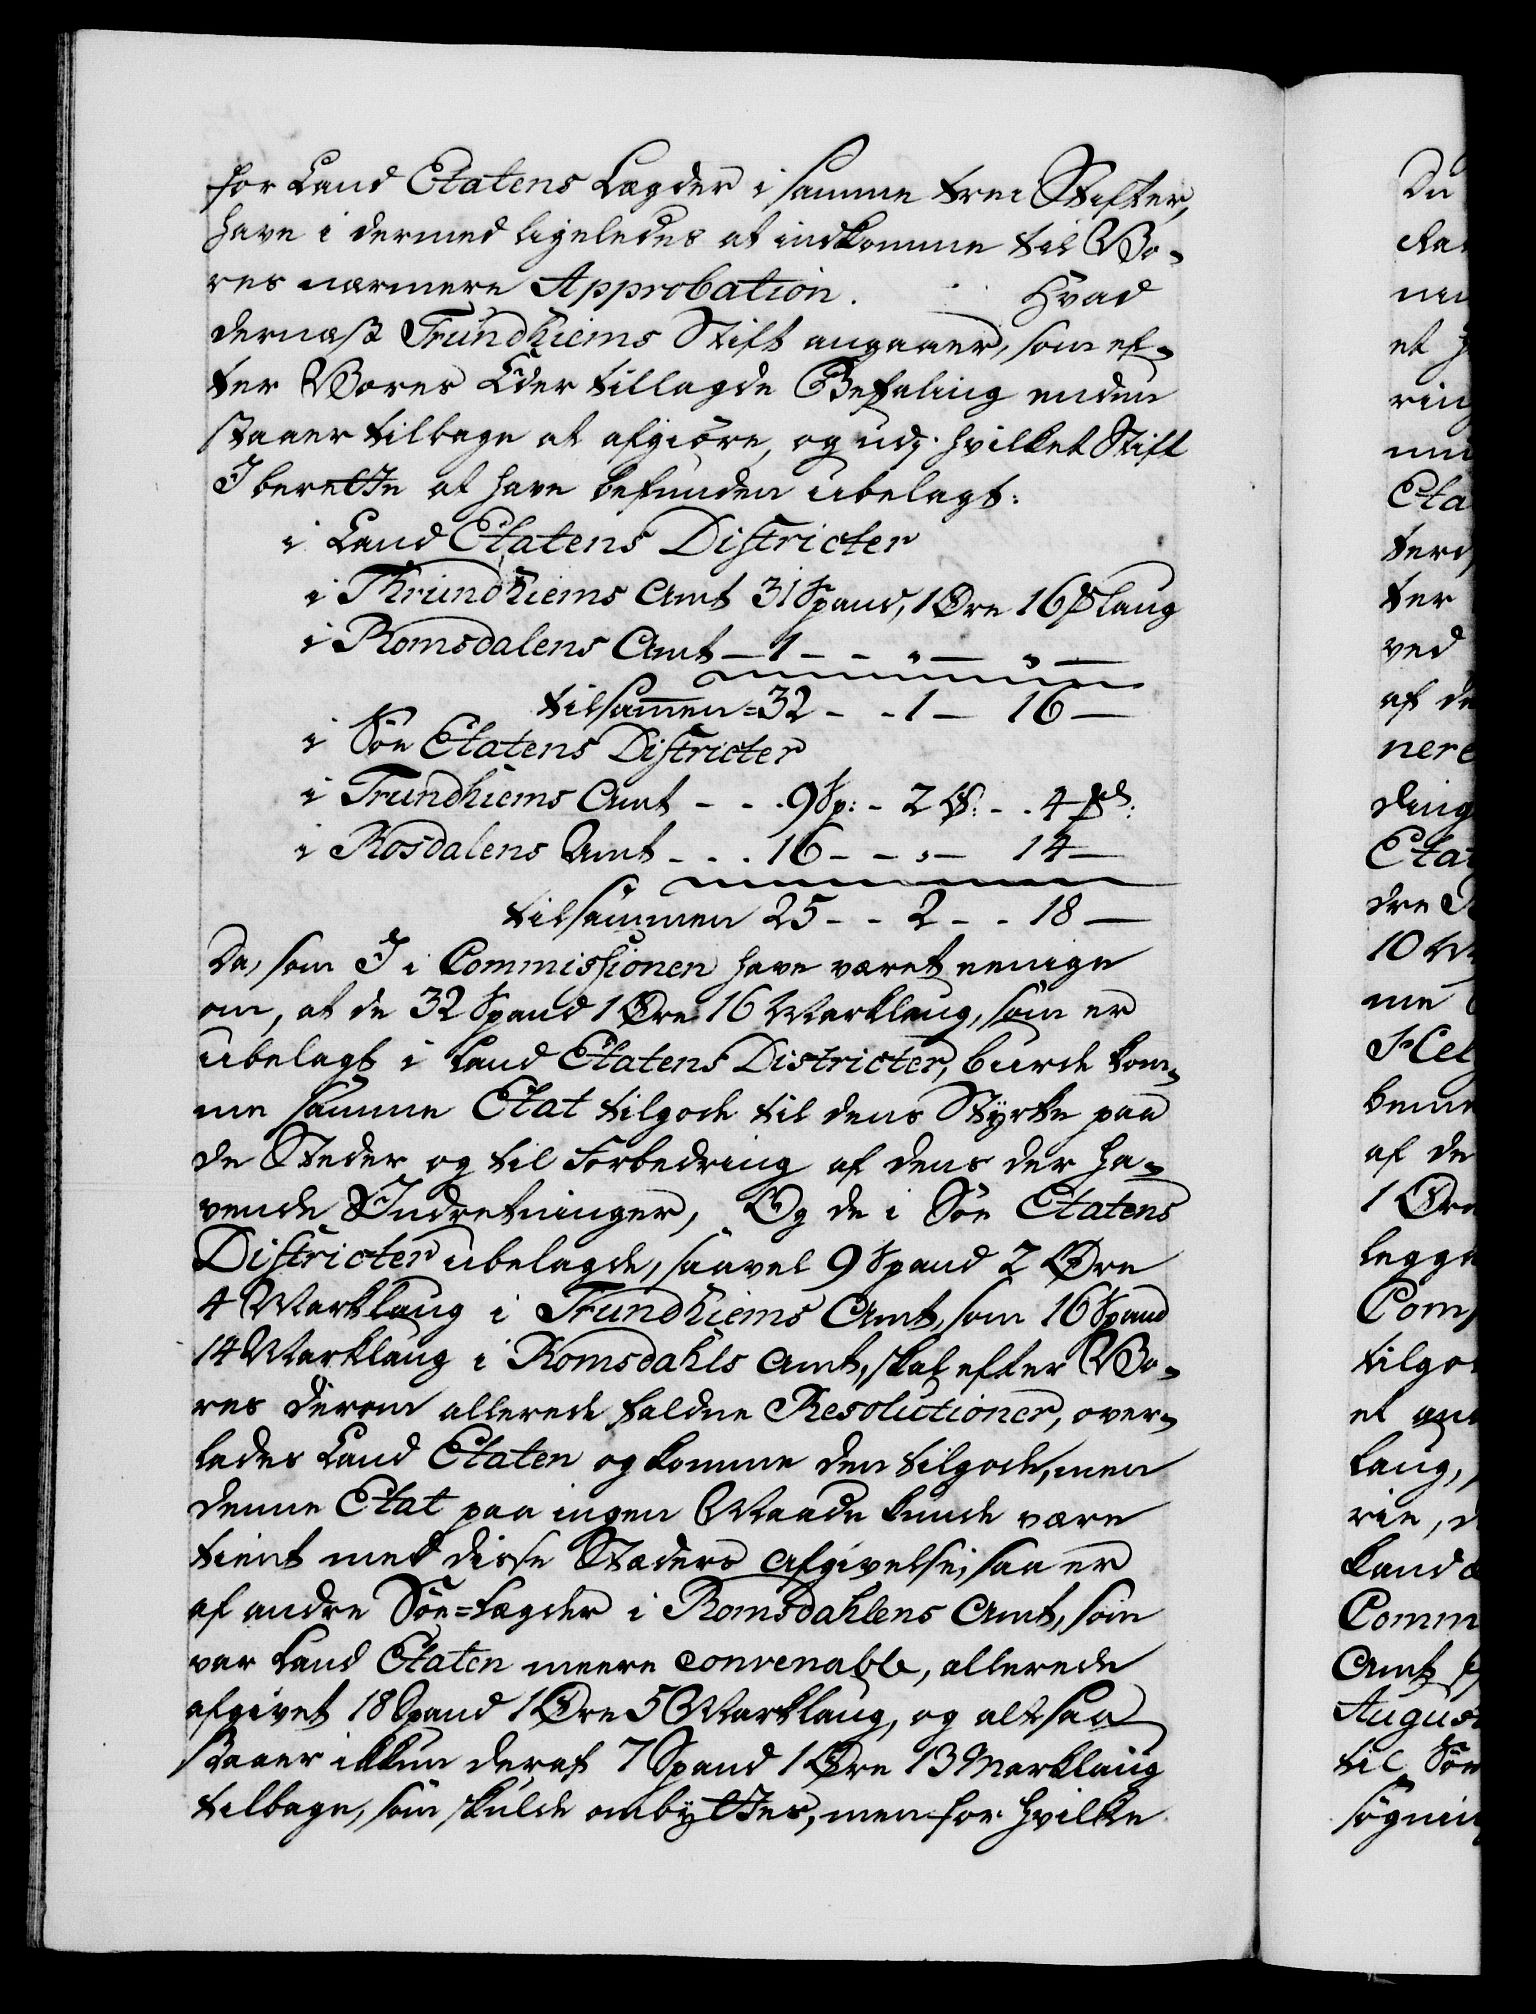 for Land Etatens Lægder i samme trei Stifter,
have i dermed ligeledes at indkomme til Vo-
res nærmere Approbation. Hvad
dernæst Trundhiems Stift angaaer, som ef-
ter Vores Eder tillagde Befaling endnu
staaer tilbage at afgiøre, og udj hvilket Stift
I berette at have befunden ubelagt:
i Land Etatens Districter
i Thrundhiems Amt 31 Spand, 1 Øre 16 Mklaug
i Romsdalens Amt — 1 - - „ — „ —
tilsammen = 32 - - 1 — 16 —
i Søe Etatens Districter
i Trundhiems Amt - - . 9 Sp: - 2 Ø: - . 4 Mk:
i Rosdalens Amt - - . 16 - - „ — 14 —
tilsammen 25 - - 2 - - 18 —
Da, som I i Commissionen have været eenige
om, at de 32 Spand 1 Øre 16 Marklaug, som er
ubelagt i Land Etatens Districter, burde kom-
me samme Etat tilgode til dens Styrke paa
de Steder og til Forbedring af dens der ha-
vende Indretninger, Og de i Søe Etatens
Districter ubelagde, saavel 9 Spand 2 Øre
4 Marklaug i Trundhiems Amt, som 16 Spand
14 Marklaug i Romsdahls Amt, skal efter Vo-
res derom allerede faldne Resolutioner, over-
lades Land Etaten og komme den tilgode, men
denne Etat paa ingen Maade kunde være
tient med disse Stæders Afgivelse, saa er
af andre Søe-Lægder i Romsdahlens Amt, som
var Land Etaten meere convenable, allerede
afgivet 18 Spand 1 Øre 5 Marklaug, og altsaa
staaer ikkun deraf 7 Spand 1 Øre 13 Marklaug
tilbage, som skulde ombyttes, men for hvilke